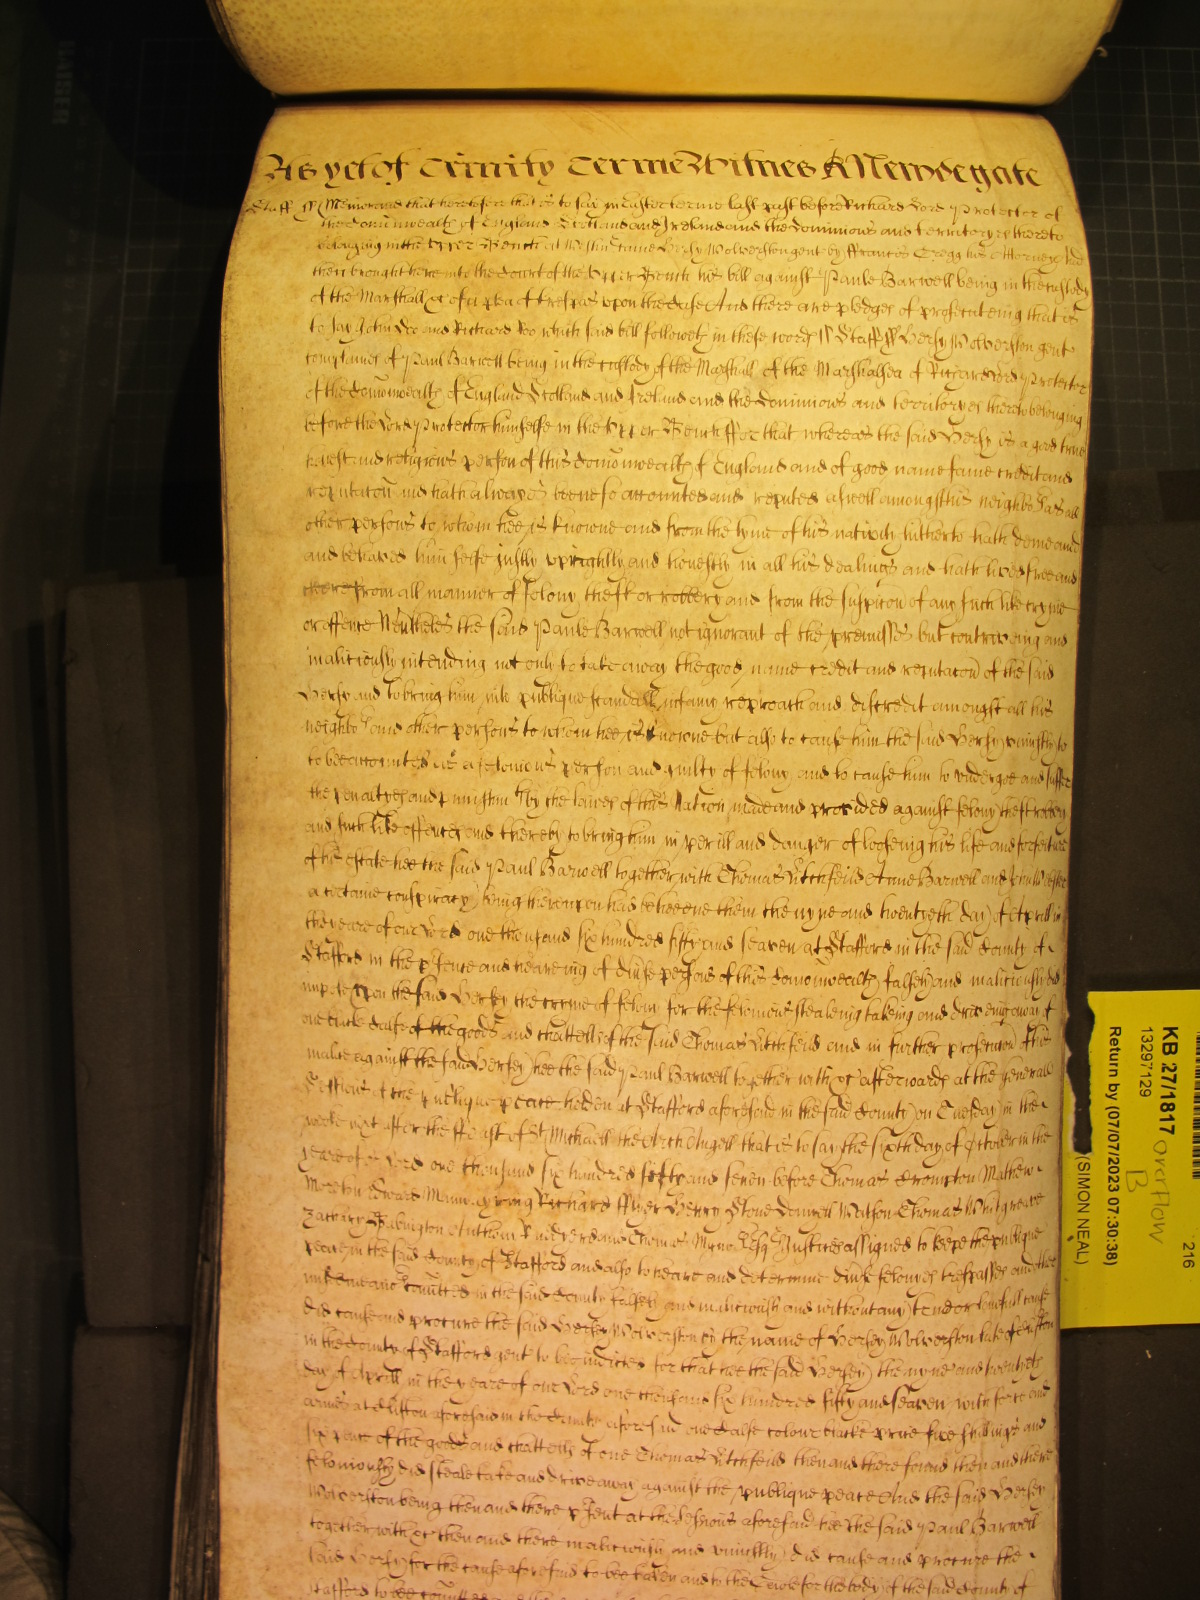 As yet of Trinity Terme Witnes R Newdegate
Staff ss Memorand that heretofore that is to say in Easter terme last past before Richard Lord Protector of
the Comonwealth of England Scotland and Ireland and the Dominions and territoryes thereto
belonging in the Upper Bench at Westm came Hersy Wolverston gent by ffrancis Gregg his Attorney And
then brought here into the Court of the Upper Bench his bill against Paule Barwell being in the custody
of the Marshall &c of a plea of trespas upon the Case And there are pledges of prosecuteing that is
to say John Doe and Richard Roo which said bill followeth in these words ss Staff ss Hersy Wolverston gent
complaines of Paul Barwell being in the custody of the Marshall of the Marshalsea of Richard Lord Protector
of the Comonwealth of England Scotland and Ireland and the Dominions and territoryes thereto belonging
before the Lord Protector himselfe in the Upper Bench ffor that whereas the said Hersy is a good true
honest and religious person of this Comonwealth of England and of good name fame creditt and
reputacon and hath alwayes beene so accounted and reputed aswell amongst his neighbo's as all
other persons to whom hee is knowne and from the tyme of his nativity hitherto hath demeaned
and behaved him selfe justly uprightly and honestly in all his dealings and hath lived free and
cleere from all manner of felony theft or robbery and from the suspicon of any such like cryme
or offence Neverthelesse the said Paule Barwell not ignorant of the premisses but contriveing and
maliciously intending not only to take away the good name credit and reputacon of the said
Hersy and to bring him into publique scandall infamy reproach and discredit amongst all his
neighbo's and other persons to whom hee is knowne but also to cause him the said Hersy uniustly to
to bee accounted as a felonious person and guilty of felony and to cause him to undergoe and suffer
the penaltyes and punishm'ts by the lawes of this Nation made and provided against felony theft robbery
and such like offences and thereby to bring him in perill and danger of looseing his life and forfeiture
of his estate hee the said Paul Barwell together with Thomas Litchfeild Anne Barwell and John
a certaine conspiracy being thereupon had betweene them the nyne and twentyeth day of Aprill in
the yeare of our Lord one thousand six hundred fifty and seaven at Stafford in the said County of
Stafford in the p'sence and heareing of divse persons of this Comonwealth falsely and maliciously did
impose upon the said Hersey the cryme of felony for the felonious stealeing takeing and driveing away of
one blacke Calfe of the goods and chattells of the said Thomas Litchfeild and in further prosecucon of this
malice against the said Hersey hee the said Paul Barwell together with &c afterwards at the generall
Sessions of the publique peace holden at Stafford aforesaid in the said County on Tuesday in the
weeke next after the ffeast of St Michaell the Arch Angell that is to say the sixth day of October in the
yeare of o'r Lord one thousand six hundred fifty and seven before Thomas Crompton Mathew
Moreton Edward Richard fflyer Henry Stone Danyell Watson Thomas Whitgreave
Zachary Babington Anthony Rudyerd and Thomas Esq's Justices assigned to keepe the publique
peace in the said County of Stafford and also to heare and determine divse felonyes trespasses and other
misdemeano's comitted in the said County falsely and maliciously and without any true or lawfull cause
did cause and procure the said Hersey Wolverston by the name of Hersey Wolverston late of Clifton
in the County of Stafford gent to bee indicted for that hee the said Hersey the nyne and twentyeth
day of Aprill in the yeare of our Lord one thousand six hundred fifty and seaven with force and
armes at Clifton aforesaid in the County aforesaid one Calfe colour blacke price five shillings and
six pence of the goods and chattells of one Thomas Litchfeild then and there found then and there
feloniously did steale take and drive away against the publique peace And the said Hersey
Wolverston being then and there p'sent at the Sessions aforesaid hee the said Paul Barwell
together with &c then and there maliciously and uniustly did cause and procure the
said Hersey for the cause aforesaid to bee taken and to the Gaole for the body of the said County of
Stafford to bee comitted
KB 27/1817 overflow B
13297129
Return by (07/07/2023 07:30:38)
(SIMON NEAL)
216